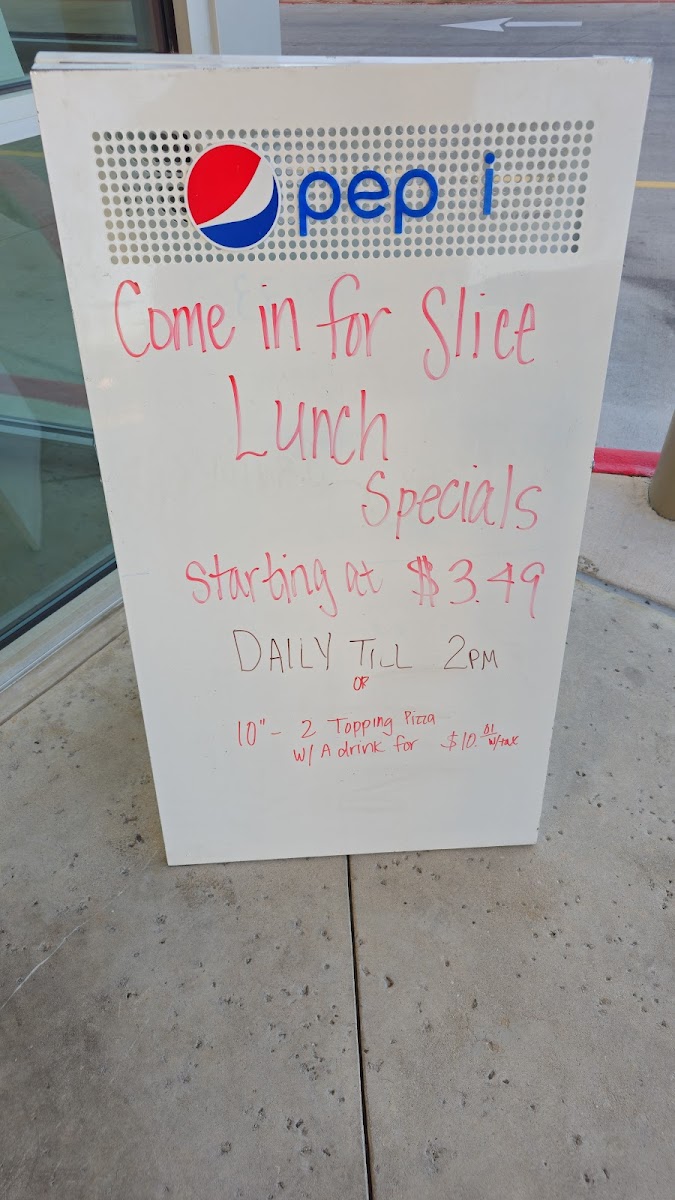 pep i
Come in for Slice
Lunch
Specials
starting at $3.49
DAILY TILL 2PM
OR
10" - 2 Topping Pizza
W/ A drink for $10.01 w/tax